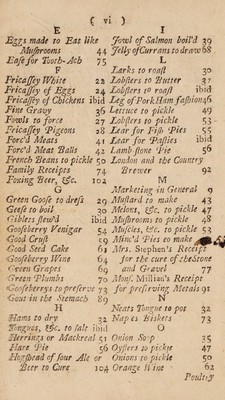 ( vi )
E
Eggs made to Eat like
Mushrooms 44
Ease for Tooth-Ach 75
F
Fricassey White 22
Fricassey of Eggs 24
Fricassey of Chickens ibid
Fine Gravy 36
Fowls to force 27
Fricassey Pigeons 28
Forc'd Meats 41
Forc'd Meat Balls 42
French Beans to pickle 50
Family Receipts 74
Foxing Beer, &c. 102
G
Green Goose to dress 29
Geese to boil 30
Giblets stew'd ibid
Gooseberry Venigar 54
Good Crust 59
Good Seed Cake 61
Gooseberry Wine 64
Green Grapes 69
Green Plumbs 70
Gooseberrys to preserve 73
Gout in the Stomach 89
H
Hams to dry 32
Tongues, &c. to salt ibid
Herrings or Mackrel 51
Hare Pie 56
Hogshead of sour Ale or
Beer to Cure 104
I
Jowl of Salmon boil'd 39
Jelly of Currans to draw 68
L
Larks to roast 30
Lobsters to Butter 37
Lobsters to roast ibid
Leg of Pork Ham fashion 46
Lettuce to pickle 47
Lobsters to pickle 53
Lear for Fish Pies 55
Lear for Pasties ibid
Lamb-stone Pie 56
London and the Country
Brewer 92
M
Marketing in General 9
Mustard to make 43
Melons, &c. to pickle 47
Mushrooms to pickle 48
Muscles, &c. to pickle 53
Minc'd Pies to make
Mrs. Stephen's Receipt
for the cure of the Stone
and Gravel 77
Mons. Millian's Receipt
for preserving Metals 91
N
Neats Tongue to pot 32
Naples Biskets 73
O
Onion Soop 35
Oysters to pickle 47
Onions to pickle 50
Orange Wine 62
Poultry